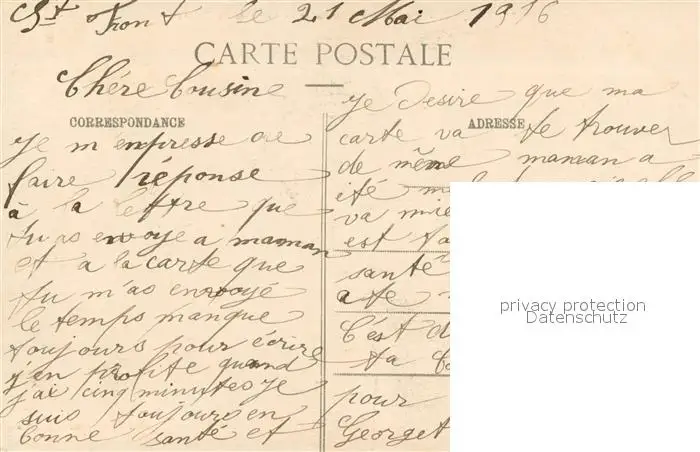 St Front le 21 Mai 1916
CARTE POSTALE
Chére Cousine
CORRESPONDANCE
Je m'enpresse de
faire réponse
à la lettre que
tu as envoyé a maman
et a la carte que
tu m'as envoyé
le temps manque
toujours pour écrire
j'en profite quand
j'ai cinq minutes je
suis toujours en
bonne santé et
ADRESSE
je desire que ma
carte va te trouver
de même maman a
ité
va mie
est ta
santé
a te
C'est d
ta C
pour
Georget
privacy protection
Datenschutz